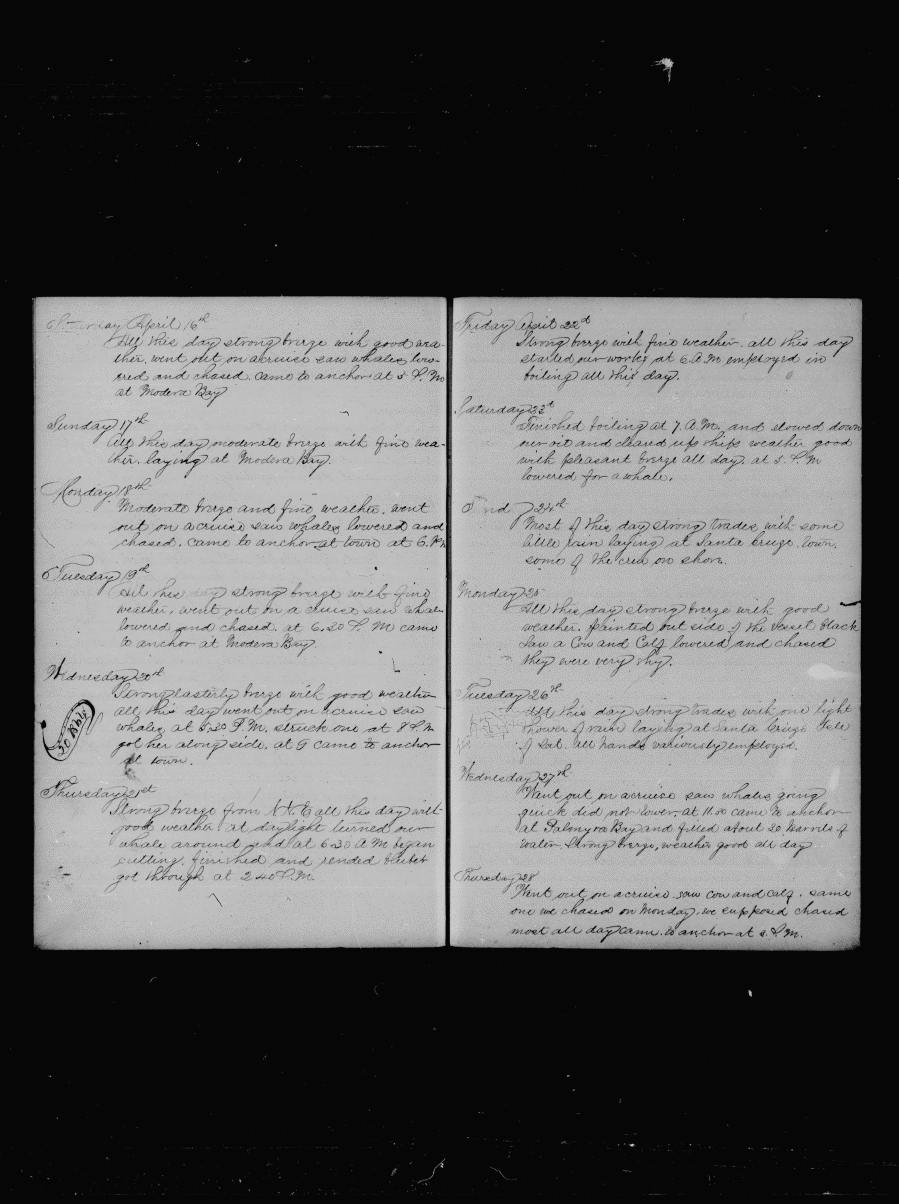 Saturday April 16th
All this day strong breeze with good wea-
ther. went out on a cruise saw whales, low-
ered and chased. came to anchor at 5 P.M
at Modera Bay
Sunday 17th
All this day moderate breeze with fine wea-
ther. laying at Modera Bay.
Monday 18th
Moderate breeze and fine weather. went
out on a cruise saw whales lowered and
chased. came to anchor at town at 6. P.M
Tuesday 19th
All this day strong breeze with fine
weather. went out on a cruise saw whales
lowered and chased. at 6.30 P. M came
to anchor at Modera Bay.
Wednesday 20th
Strong easterly breeze with good weather
all this day went out on a cruise saw
whales at 5.30 P.M. struck one at 8 P.M
got her along side. at 9 came to anchor
at town.
30 Bbls
Thursday 21st
Strong breeze from N.N.E all this day with
good weather at daylight turned our
whale around and at 6.30 A.M began
cutting. finished and
got through at 2.40 P.M.
Friday April 22d
Strong breeze with fine weather. all this day
started our works at 6 A.M employed in
boiling all this day.
Saturday 23d
Finished boiling at 7. A.M. and stowed down
our oil and cleared up ship weather good
with pleasant breeze all day. at 5. P.M
lowered for a whale.
24th
Most of this day strong trades with some
little rain laying at Santa Cruze. town.
some of the crew on shore.
Monday 25
All this day strong breeze with good
weather. painted out side of the vessel black
Saw a Cow and Calf lowered and chased
they were very shy.
Tuesday 26th
All this day strong trades with one light
shower of rain laying at Santa Cruze
all hands variously employed.
Wednesday 27th
Went out on a cruise saw whales going
quick did not lower at 11.00 came to anchor
at Palmyra Bay and filled about 20 barrels of
water. Strong breeze, weather good all day
Thursday 28
Went out on a cruise saw cow and calf. same
one we chased on Monday. we supposed chased
most all day came to anchor at 5. P.M.